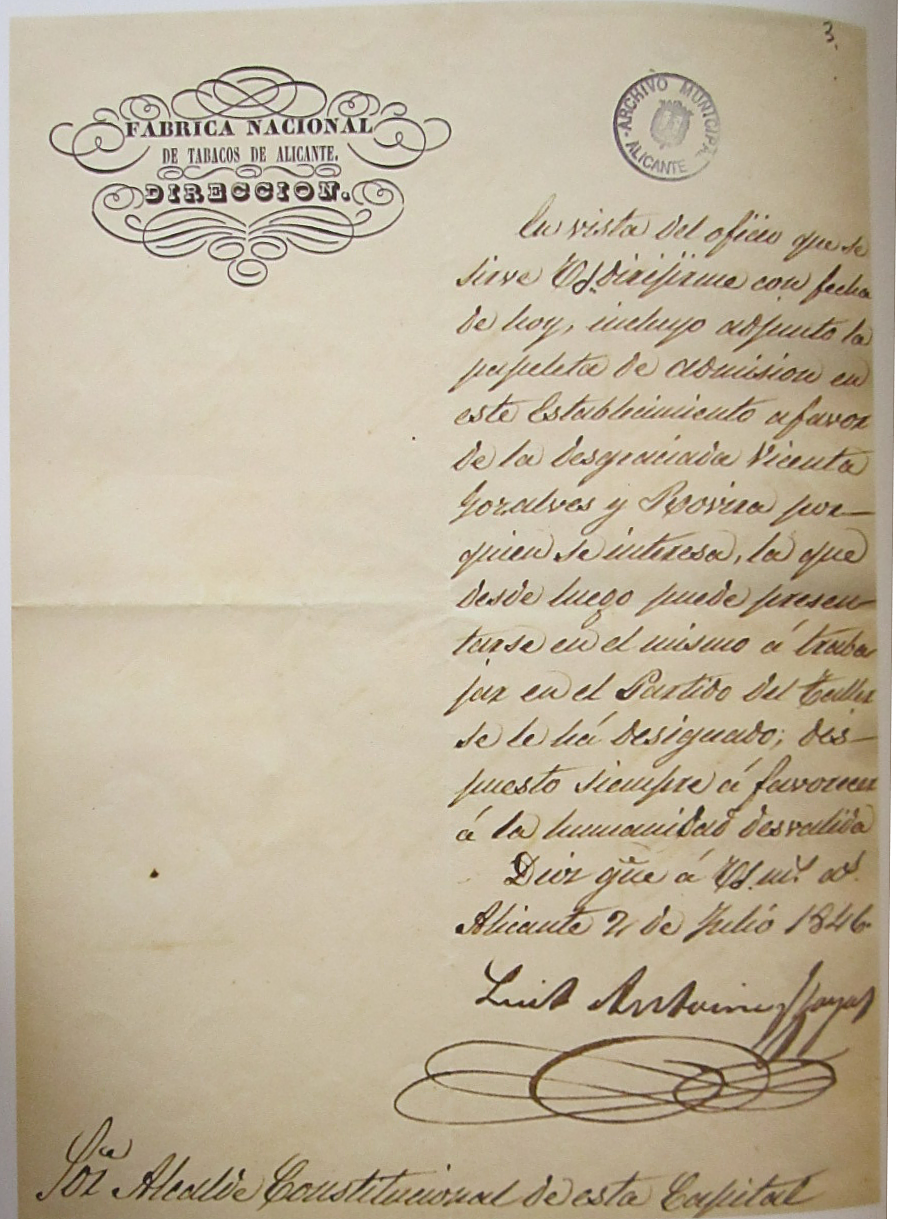 3.
FABRICA NACIONAL
DE TABACOS DE ALICANTE.
DIRECCION.
ARCHIVO MUNICIPAL
ALICANTE
En vista del oficio que se
sirve VS. dirijirme con fecha
de hoy, incluyo adjunto la
papeleta de admision en
este Establecimiento a favor
de la desgraciada Vicenta
Gozalves y Rovira por
quien se interesa, la que
desde luego puede presen-
tarse en el mismo á traba
jar en el Partido del Taller
se le há designado; dis-
puesto siempre á favorecer
á la humanidad desvalida
Dios gũe á VS. ms. as.
Alicante 2 de Julio 1846.
Luis Antonio
Sor Alcalde Constitucional de esta Capital